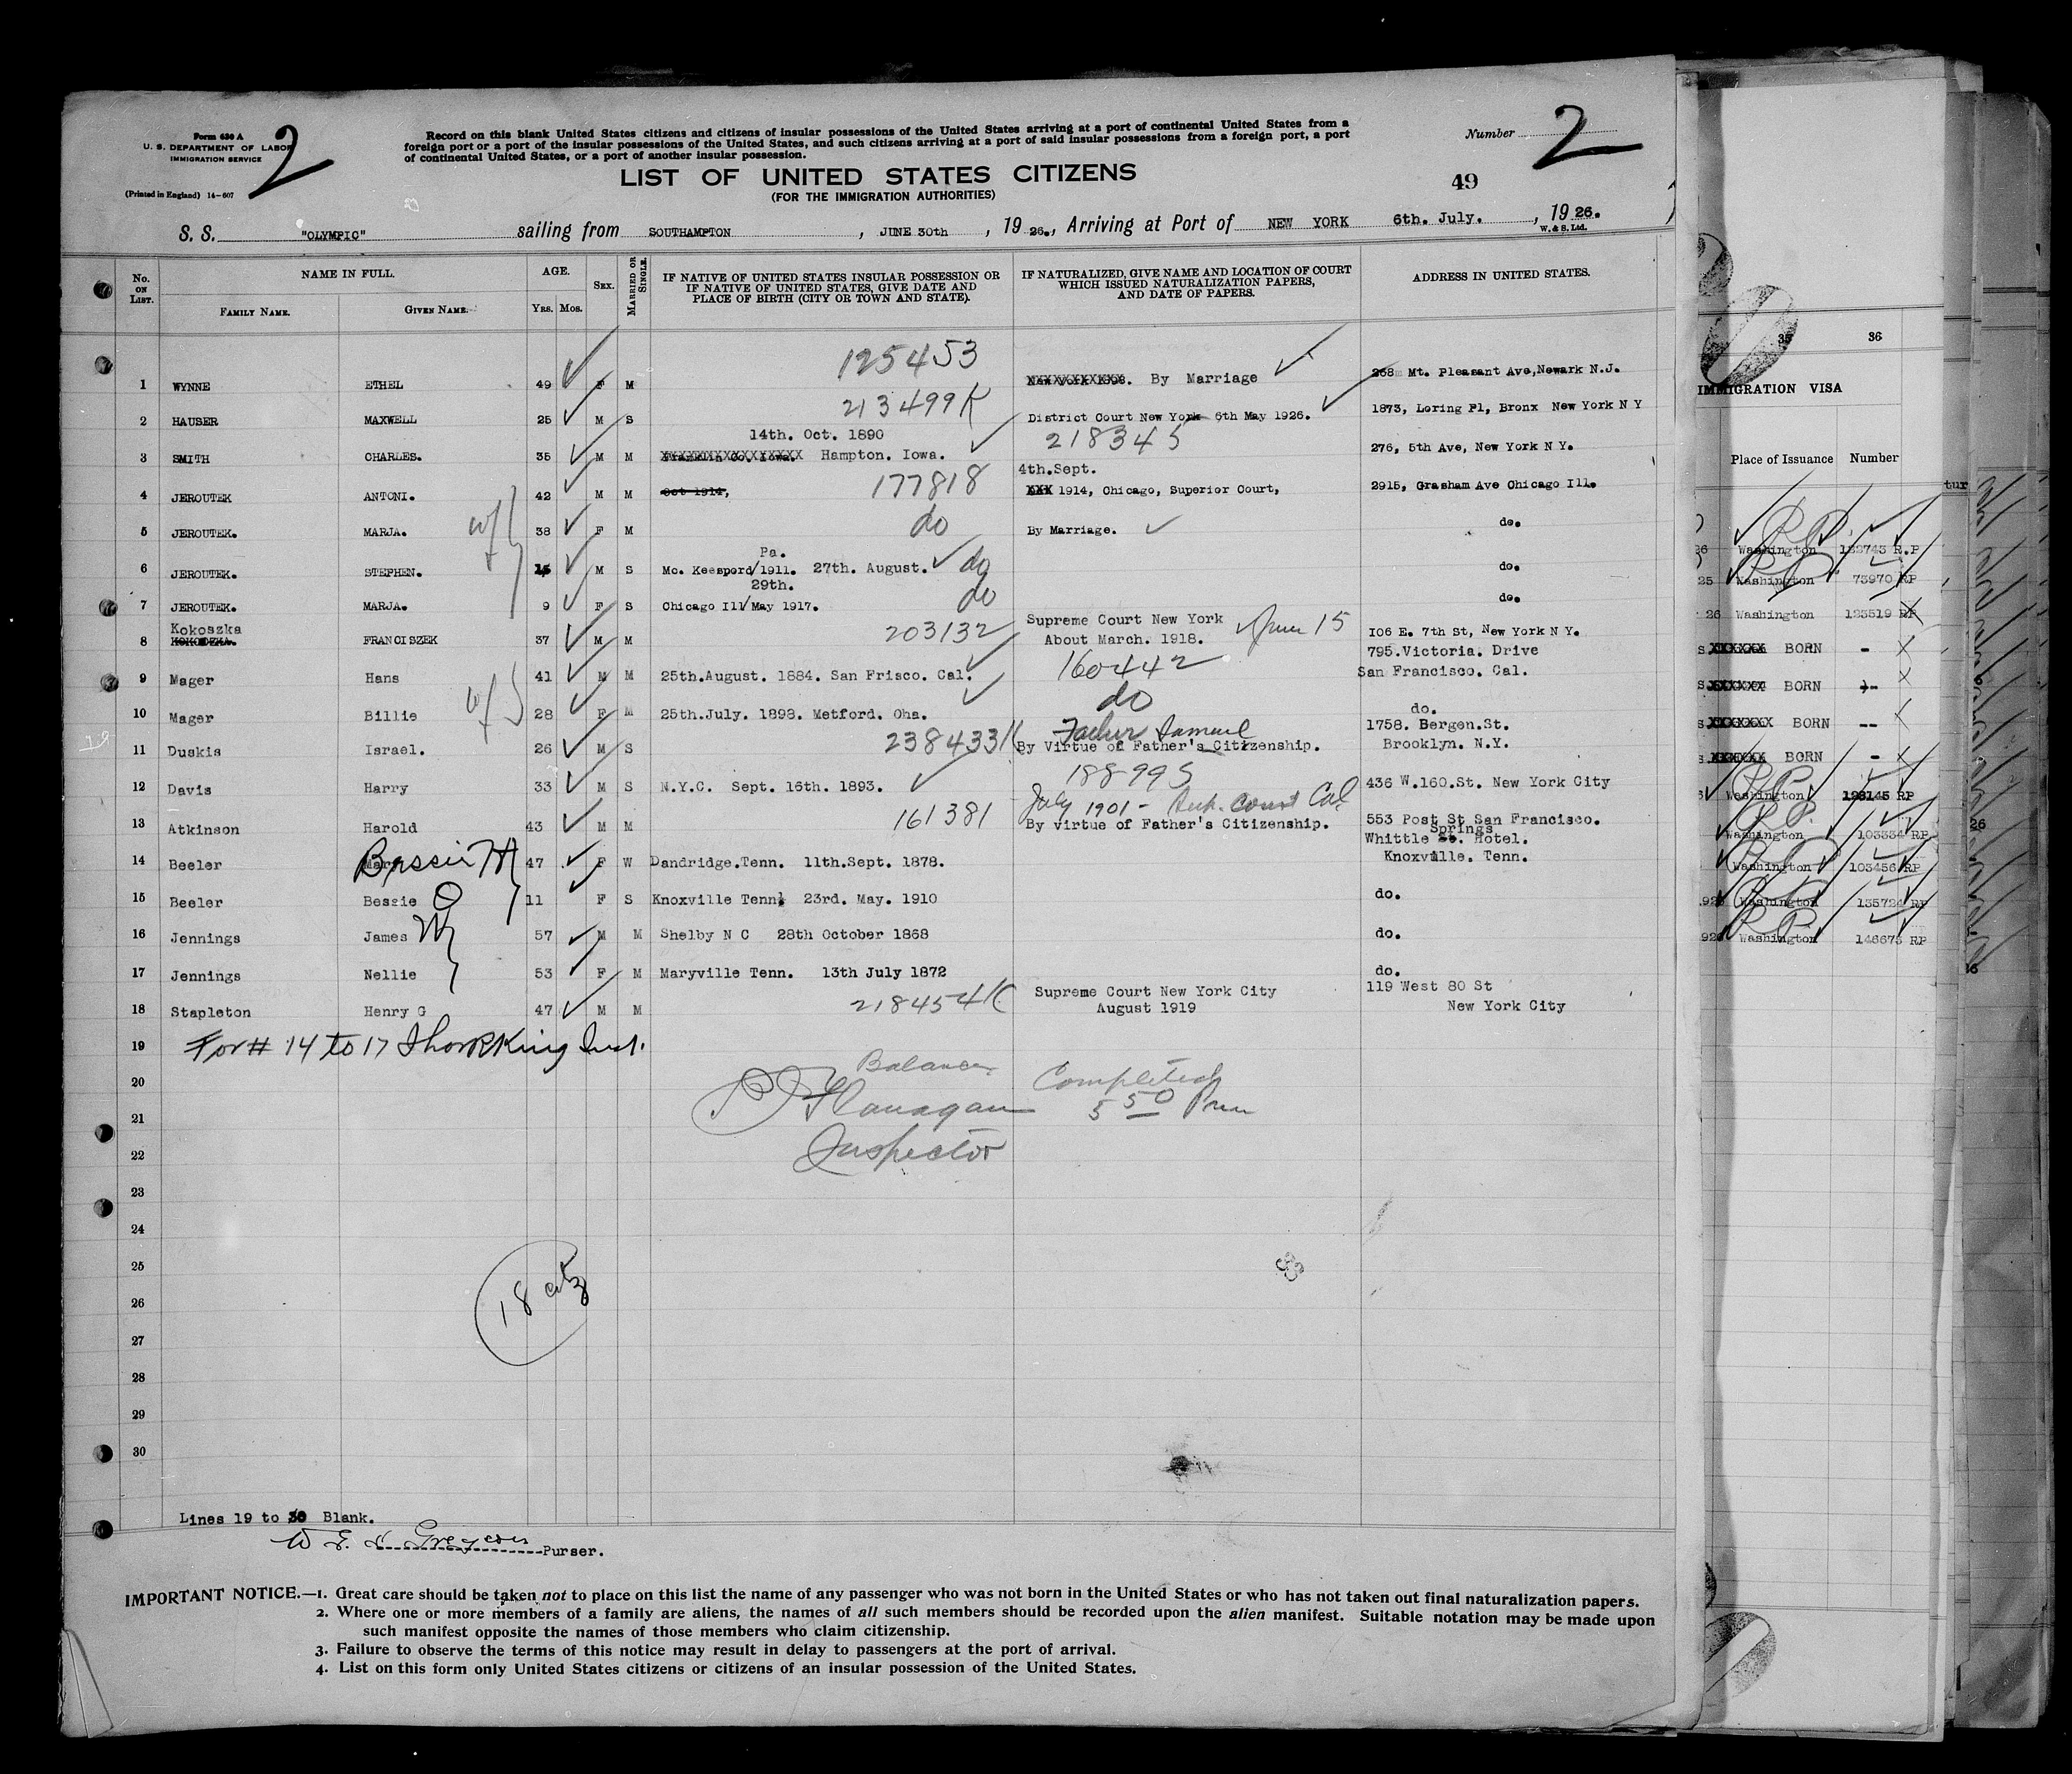 Form 630 A
U. S. DEPARTMENT OF LABOR
IMMIGRATION SERVICE
(Printed in England) 14-607
2
Record on this blank United States citizens and citizens of insular possessions of the United States arriving at a port of continental United States from a
foreign port or a port of the insular possessions of the United States, and such citizens arriving at a port of said insular possessions from a foreign port, a port
of continental United States, or a port of another insular possession.
Number 2
LIST OF UNITED STATES CITIZENS
(FOR THE IMMIGRATION AUTHORITIES)
49
S. S. "OLYMPIC" sailing from SOUTHAMPTON , JUNE 30th , 19 26., Arriving at Port of NEW YORK 6th. July. , 19 26.
W. & S. Ltd.
No. ON LIST. NAME IN FULL. AGE. SEX. MARRIED OR SINGLE. IF NATIVE OF UNITED STATES INSULAR POSSESSION OR IF NATIVE OF UNITED STATES, GIVE DATE AND PLACE OF BIRTH (CITY OR TOWN AND STATE). IF NATURALIZED, GIVE NAME AND LOCATION OF COURT WHICH ISSUED NATURALIZATION PAPERS, AND DATE OF PAPERS. ADDRESS IN UNITED STATES.
FAMILY NAME. GIVEN NAME. YRS. MOS.
125453
1 WYNNE ETHEL 49 F M By Marriage 268 Mt. Pleasant Ave, Newark N.J.
213499K
2 HAUSER MAXWELL 25 M S District Court New York 6th May 1926. 1873, Loring Pl, Bronx New York N Y
14th. Oct. 1890 218345
3 SMITH CHARLES. 35 M M Franklin Co. Iowa. Hampton. Iowa. 276, 5th Ave, New York N Y.
4th.Sept.
4 JEROUTEK ANTONI. 42 M M Oct 1914, 177818 XXX 1914, Chicago, Superior Court, 2915, Grasham Ave Chicago Ill.
5 JEROUTEK. MARJA. 38 F M do By Marriage. do.
Pa.
6 JEROUTEK. STEPHEN. 15 M S Mc. Keesperd/1911. 27th. August. do do.
29th.
7 JEROUTEK. MARJA. 9 F S Chicago Ill/May 1917. do do.
Kokoszka 203132 Supreme Court New York
8 KOKOSZKA. FRANCISZEK 37 M M About March. 1918. June 15 106 E. 7th St, New York N Y.
160442 795.Victoria. Drive
9 Mager Hans 41 M M 25th.August. 1884. San Frisco. Cal. San Francisco. Cal.
do
10 Mager Billie 28 F M 25th.July. 1898. Metford. Oha. do.
238433K Father Samuel 1758. Bergen.St.
11 Duskis Israel. 26 M S By Virtue of Father's Citizenship. Brooklyn. N.Y.
188995
12 Davis Harry 33 M S N.Y.C. Sept. 16th. 1893. 436 W.160.St. New York City
July 1901 - Sup. Court Cal
13 Atkinson Harold 43 M M 161381 By virtue of Father's Citizenship. 553 Post St San Francisco.
Springs
Whittle St. Hotel.
14 Beeler Bessie M 47 F W Dandridge.Tenn. 11th.Sept. 1878. Knoxville. Tenn.
15 Beeler Bessie O 11 F S Knoxville Tenn. 23rd. May. 1910 do.
16 Jennings James M 57 M M Shelby N C 28th October 1868 do.
17 Jennings Nellie 53 F M Maryville Tenn. 13th July 1872 do.
Supreme Court New York City 119 West 80 St
18 Stapleton Henry G 47 M M 218454K August 1919 New York City
19 For # 14 to 17
20 Balances Completed
21 Flanagan 5 50 Pm
22 Inspector
23
24
25
18
26
27
28
29
30
Lines 19 to 30 Blank.
Purser.
IMPORTANT NOTICE.—1. Great care should be taken not to place on this list the name of any passenger who was not born in the United States or who has not taken out final naturalization papers.
2. Where one or more members of a family are aliens, the names of all such members should be recorded upon the alien manifest. Suitable notation may be made upon
such manifest opposite the names of those members who claim citizenship.
3. Failure to observe the terms of this notice may result in delay to passengers at the port of arrival.
4. List on this form only United States citizens or citizens of an insular possession of the United States.
35 36
IMMIGRATION VISA
Place of Issuance Number
26 Washington 122743 R.P
25 Washington 73970 RP
26 Washington 123519 RP
XXXXXX BORN -
XXXXXX BORN --
XXXXXXX BORN --
XXXXXX BORN -
Washington 128145 RP
Washington 103334 RP
Washington 103456 RP
Washington 135724 RP
Washington 146675 RP